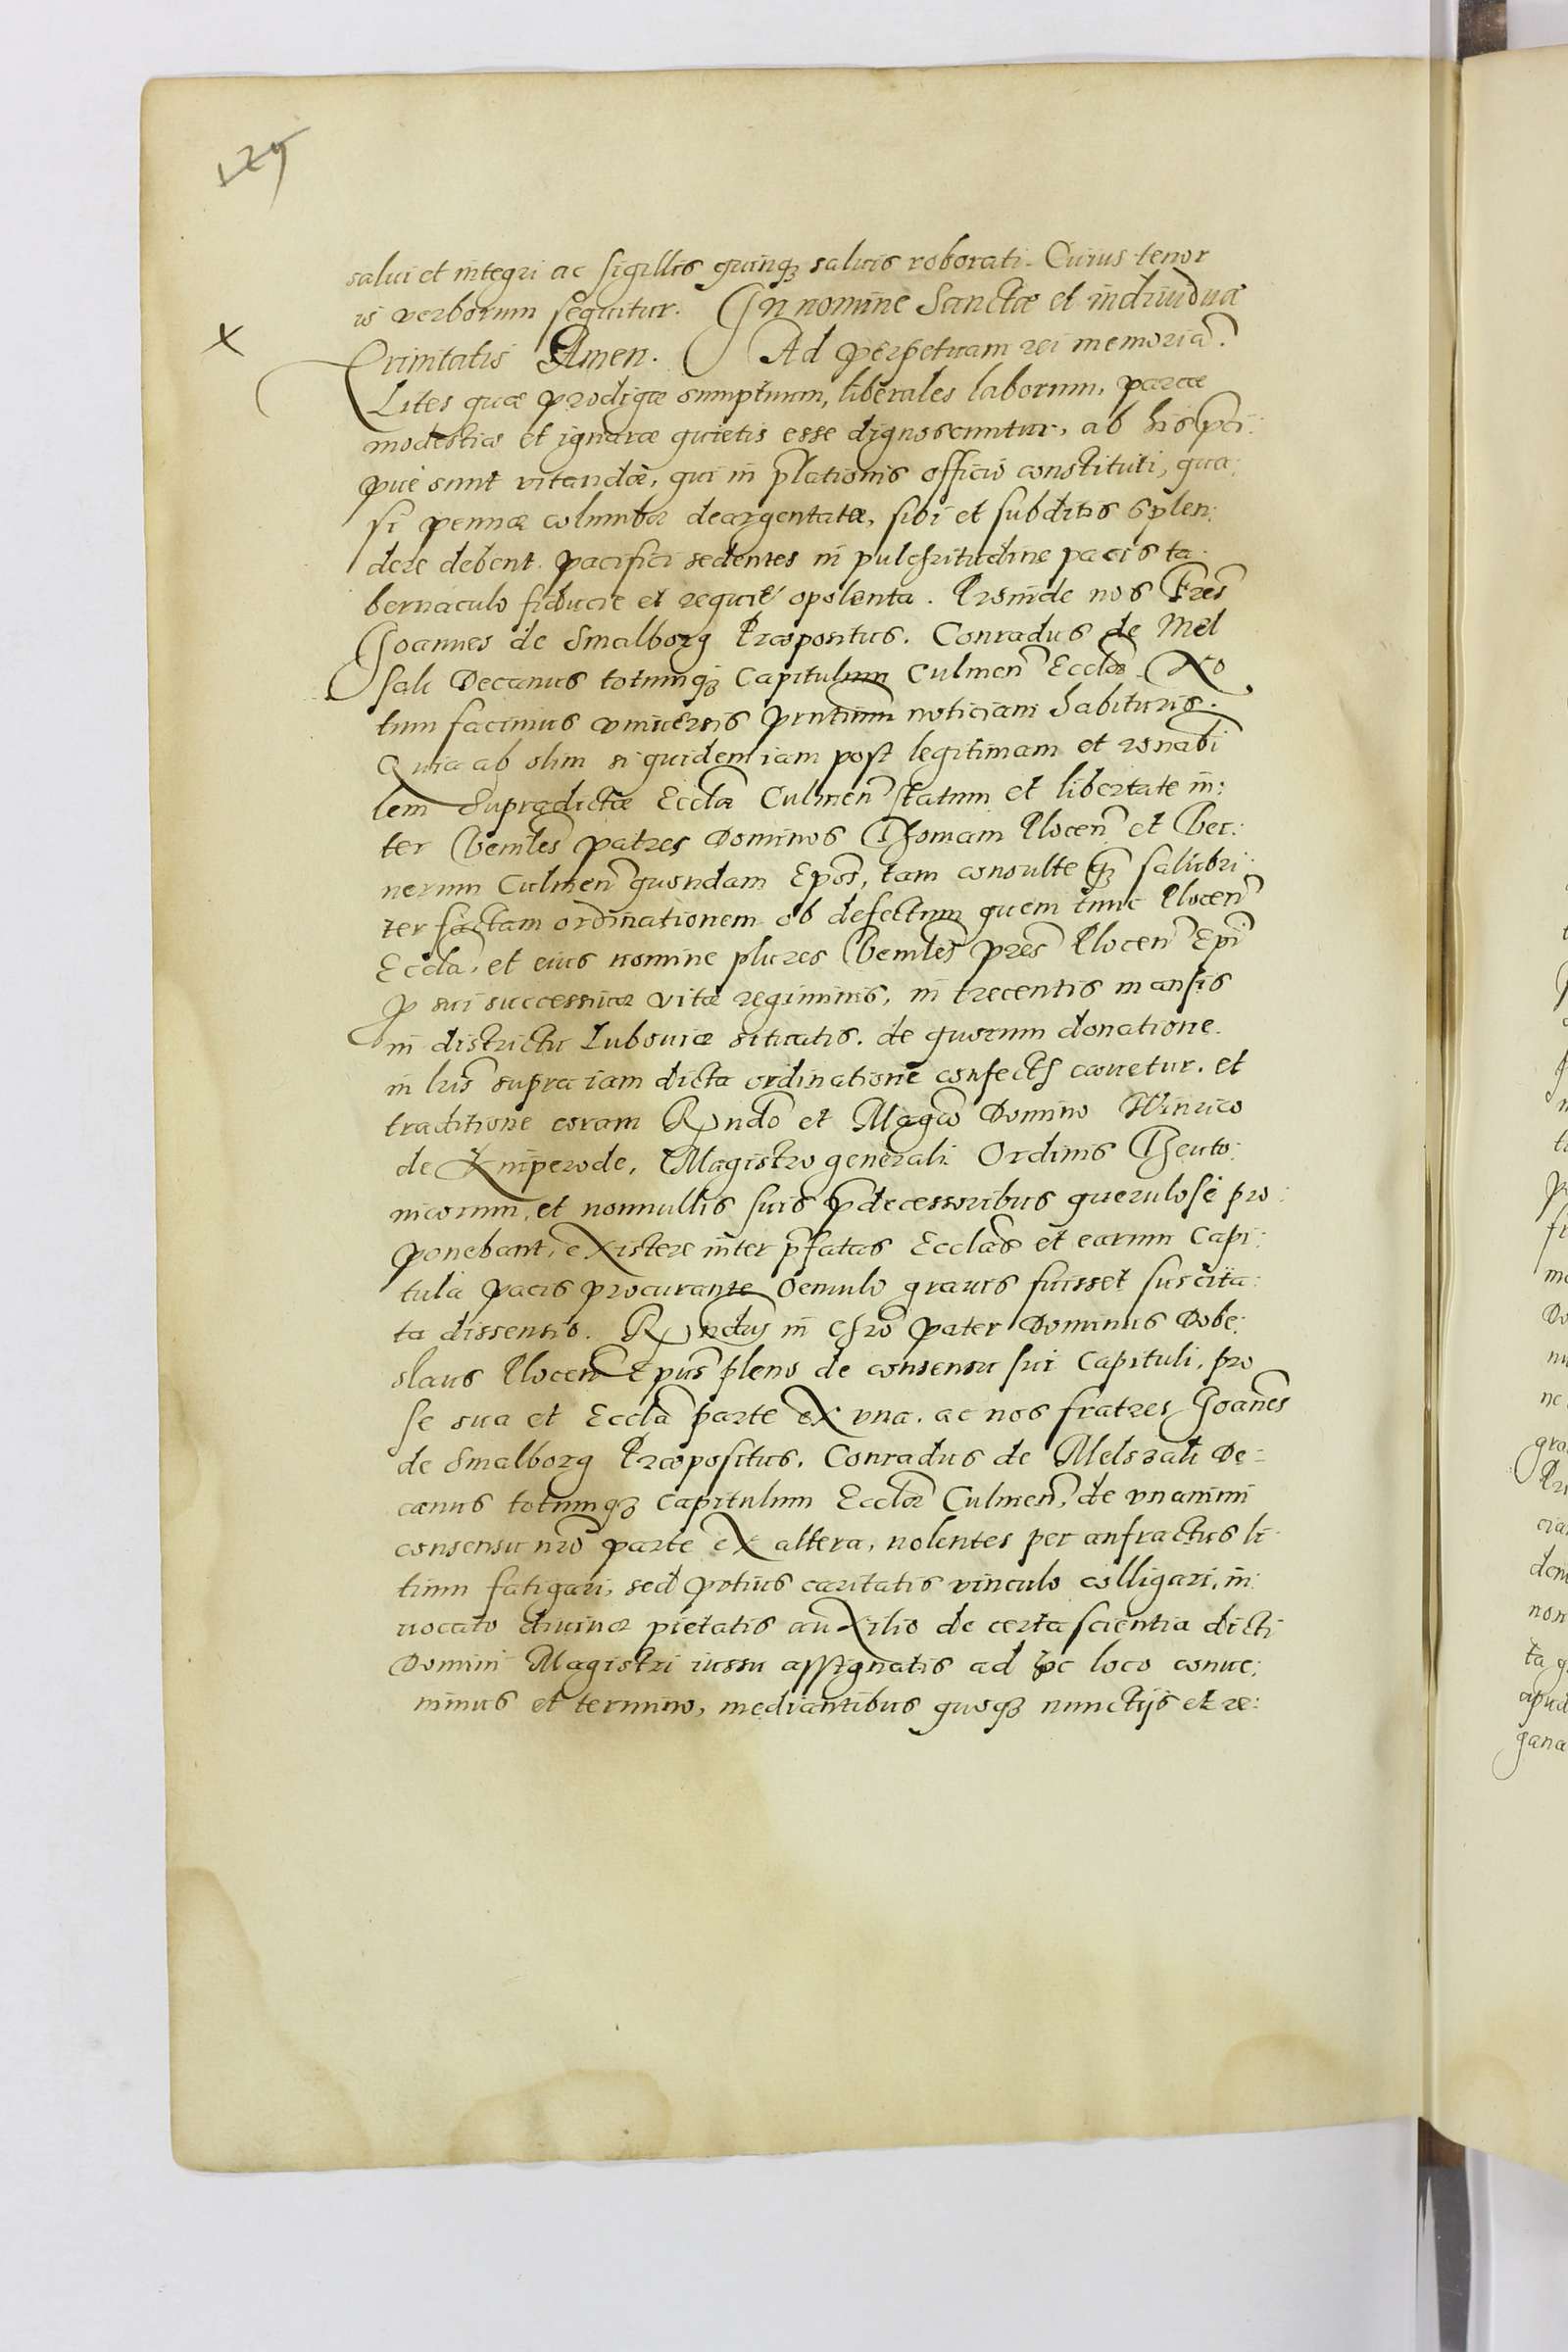 129
salui et integri ac sigillis quinqꝫ saluis roborati. Cuius tenor
is verborum sequitur. In nomine Sanctæ et indiuiduæ
x
Trinitatis Amen. Ad perpetuam rei memoriã.
Lites quæ prodigæ sumptuum, liberales laborum, parcæ
modestiæ et ignaræ quietis esse dignoscuntur, ab his pci:
pue sunt vitandæ, qui in plationis officio constituti, qua:
si pennæ columbæ deargentatæ, sibi et subditis splen:
dere debent pacifici sedentes in pulchritudine pacis ta:
bernaculo fiducie et requie opolenta. Proinde nos Fres
Joannes de Smalborg Præpositus. Conradus de Mel
sali Decanus totumqꝫ Capitulum Culmen Ecclæ No
tum facimus vniuersis pntium noticiam habituris.
Quia ab olim siquidem iam post legitimam et ronabi
lem Supradictæ Ecclæ Culmen statum et libertate in:
ter Venles patres Dominos Thomam Plocen et Ver:
nerum Culmen quondam Epos, tam consulte qꝫ salubri
ter factam ordinationem ob defectum quem tunc Plocen
Eccla, et eius nomine plures Venles pres Plocen Epi
p sui successiuæ vitæ regiminis, in trecentis mansis
in districtu Lubouiæ situatis. de quorum donatione
in lris supra iam dicta ordinatione confectis cauetur. et
traditione coram Rndo et Magco Domino Winrico
de Kniperode, Magistro generali Ordinis Theuto:
nicorum, et nonnullis suis pdecessoribus querulose pro:
ponebant, existere inter pfatas Ecclas et earum Capi:
tula pacis procurante oemulo grauis fuisset suscita:
ta dissensio. Rndus in Chro pater Dominus Dobe:
slaus Plocen Epus pleno de consensu sui Capituli, pro
se sua et Eccla parte ex vna. ac nos fratres Joanes
de Smalborg Præpositus, Conradus de Melszali De=
canus totumqꝫ Capitulum Ecclæ Culmen, de vnanimi
consensu nro parte ex altera, nolentes per anfractus li
tium fatigari, sed potius caritatis vinculo colligari, in:
uocato diuinæ pietatis auxilio de certa scientia dicti
Domini Magistri iussu assignatis ad hoc loco conue:
nimus et termino, mediantibus quoqꝫ nunctijs et re: